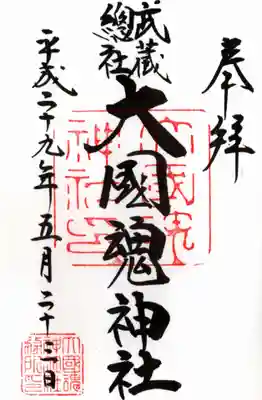 奉拝
武蔵
總社
大國魂神社
平成二十九年五月二十三日
大國魂
神社印